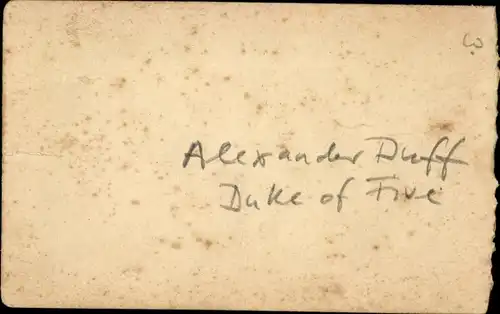 Alexander Duff
Duke of Five